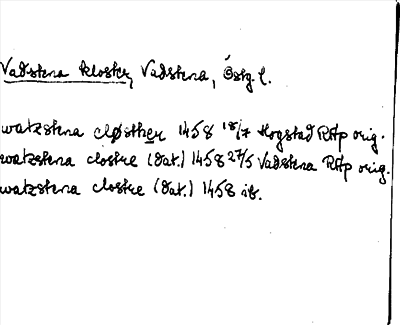 Vadstena kloster, Vadstena, Östg l.
watzstena cløsther 1458 18/7 Hogstad RAp orig.
watzstena clostre (dat.) 1458 27/5 Vadstena RAp orig.
watzstena clostre (dat.) 1458 ib.